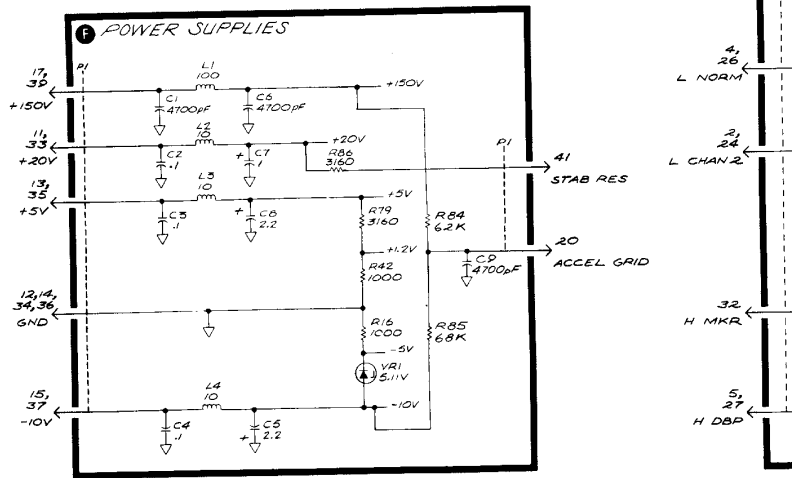 F POWER SUPPLIES
P1
17,
39
+150V
L1
100
C1
4700pF
C6
4700pF
+150V
11,
33
+20V
L2
10
C2
.1
+ C7
.1
+20V
R86
3160
P1
41
STAB RES
13,
35
+5V
L3
10
C3
.1
+ C8
2.2
+5V
R79
3160
R84
62K
+1.2V
20
ACCEL GRID
C9
4700pF
R42
1000
12,14,
34,36
GND
R16
1000
R85
68K
-5V
VR1
5.11V
15,
37
-10V
L4
10
C4
.1
+ C5
2.2
-10V
4,
26
L NORM
2,
24
L CHAN 2
32
H MKR
5,
27
H DBP